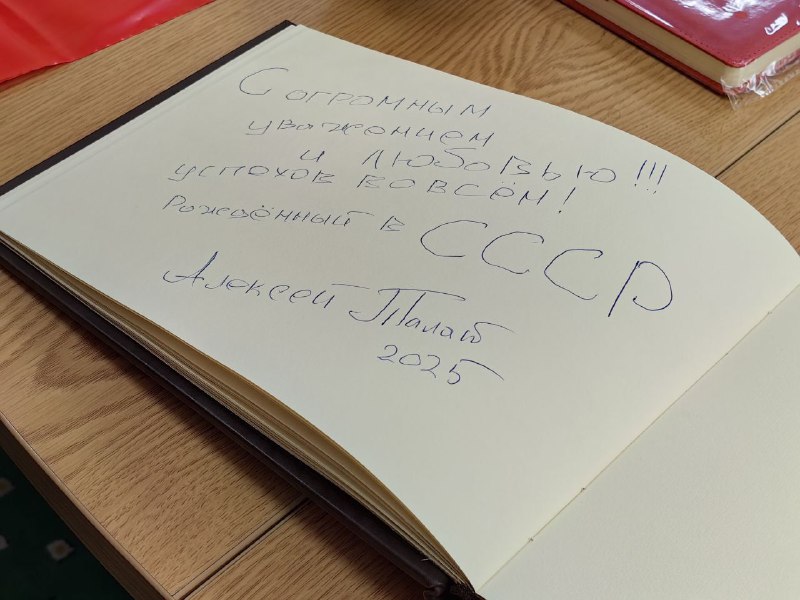 С огромным
уважением
и любовью!!!
успехов во всём!
Рождённый в СССР
Алексей Талай
2025